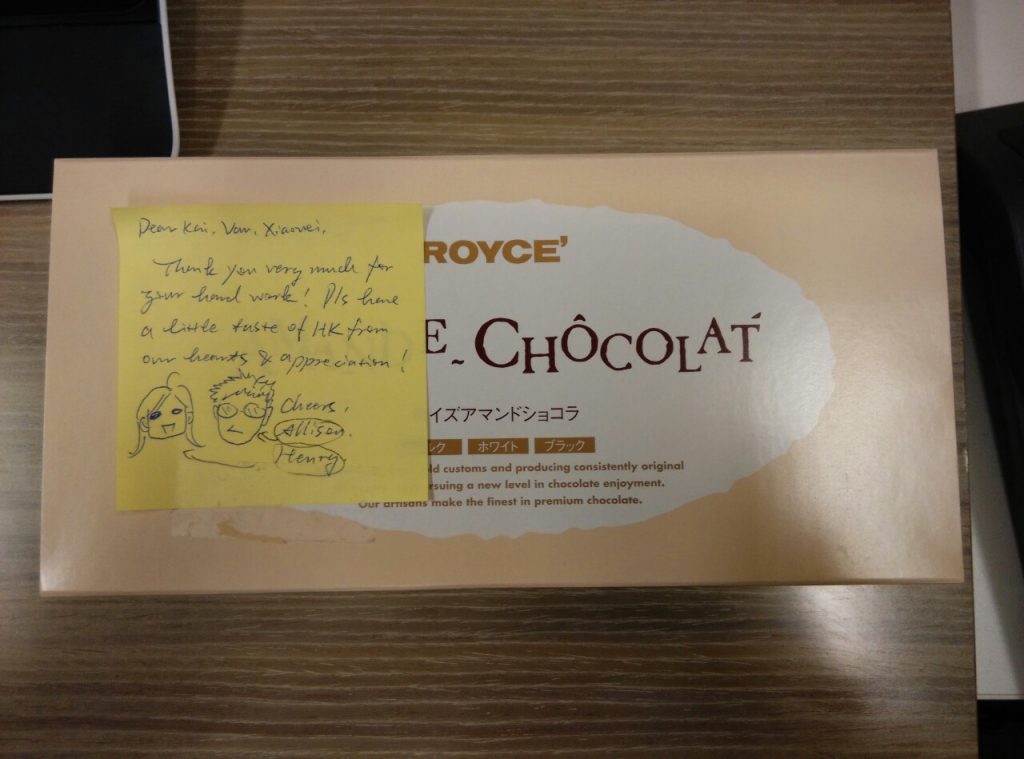 Dear Kai, Van, Xiaowei,
Thank you very much for
your hard work! Pls have
a little taste of HK from
our hearts & appreciation!
Cheers,
Allison.
Henry
ROYCE'
E- CHÔCOLAT
イズアマンドショコラ
ルク ホワイト ブラック
ld customs and producing consistently original
rsuing a new level in chocolate enjoyment.
Our artisans make the finest in premium chocolate.